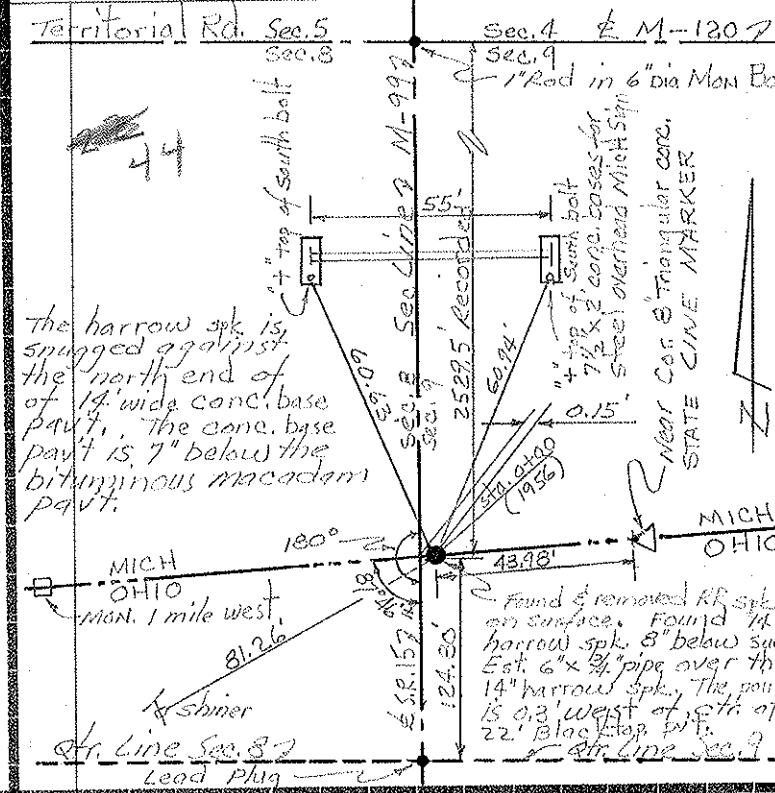 Territorial Rd. Sec. 5
Sec. 8
Sec. 4 ℄ M-120
Sec. 9
1" Rod in 6" Dia Mon Bo
44
"+" top of south bolt
Sec Line M-99
Sec. 8
Sec. 9
2529.5' Recorded
55'
"+" top of South bolt
7½ x 2' conc. bases for
Steel overhead Mich Sign
Near Cor. 8" Triangular conc.
STATE LINE MARKER
N
The harrow spk is
snugged against
the north end of
of 14' wide conc. base
pav't. The conc. base
pav't is 7" below the
bituminous macadam
pav't.
60.63'
60.94'
0.15'
sta. 0+00
(1956)
180°
MICH
OHIO
MICH
OHIO
43.98'
MON. 1 mile west
81.26'
Shiner
℄ S.R. 157
124.80'
Found & removed RR spk
on surface. Found 14
harrow spk. 8" below su
Est. 6" x ¾" pipe over th
14" harrow spk. The poi
is 0.3' west of ctr. of
22' Blacktop pvt.
Qtr. Line Sec. 8
Qtr. Line Sec. 9
Lead Plug